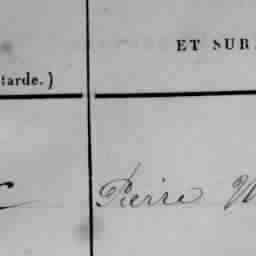 ET SUR
tarde.)
Pierre